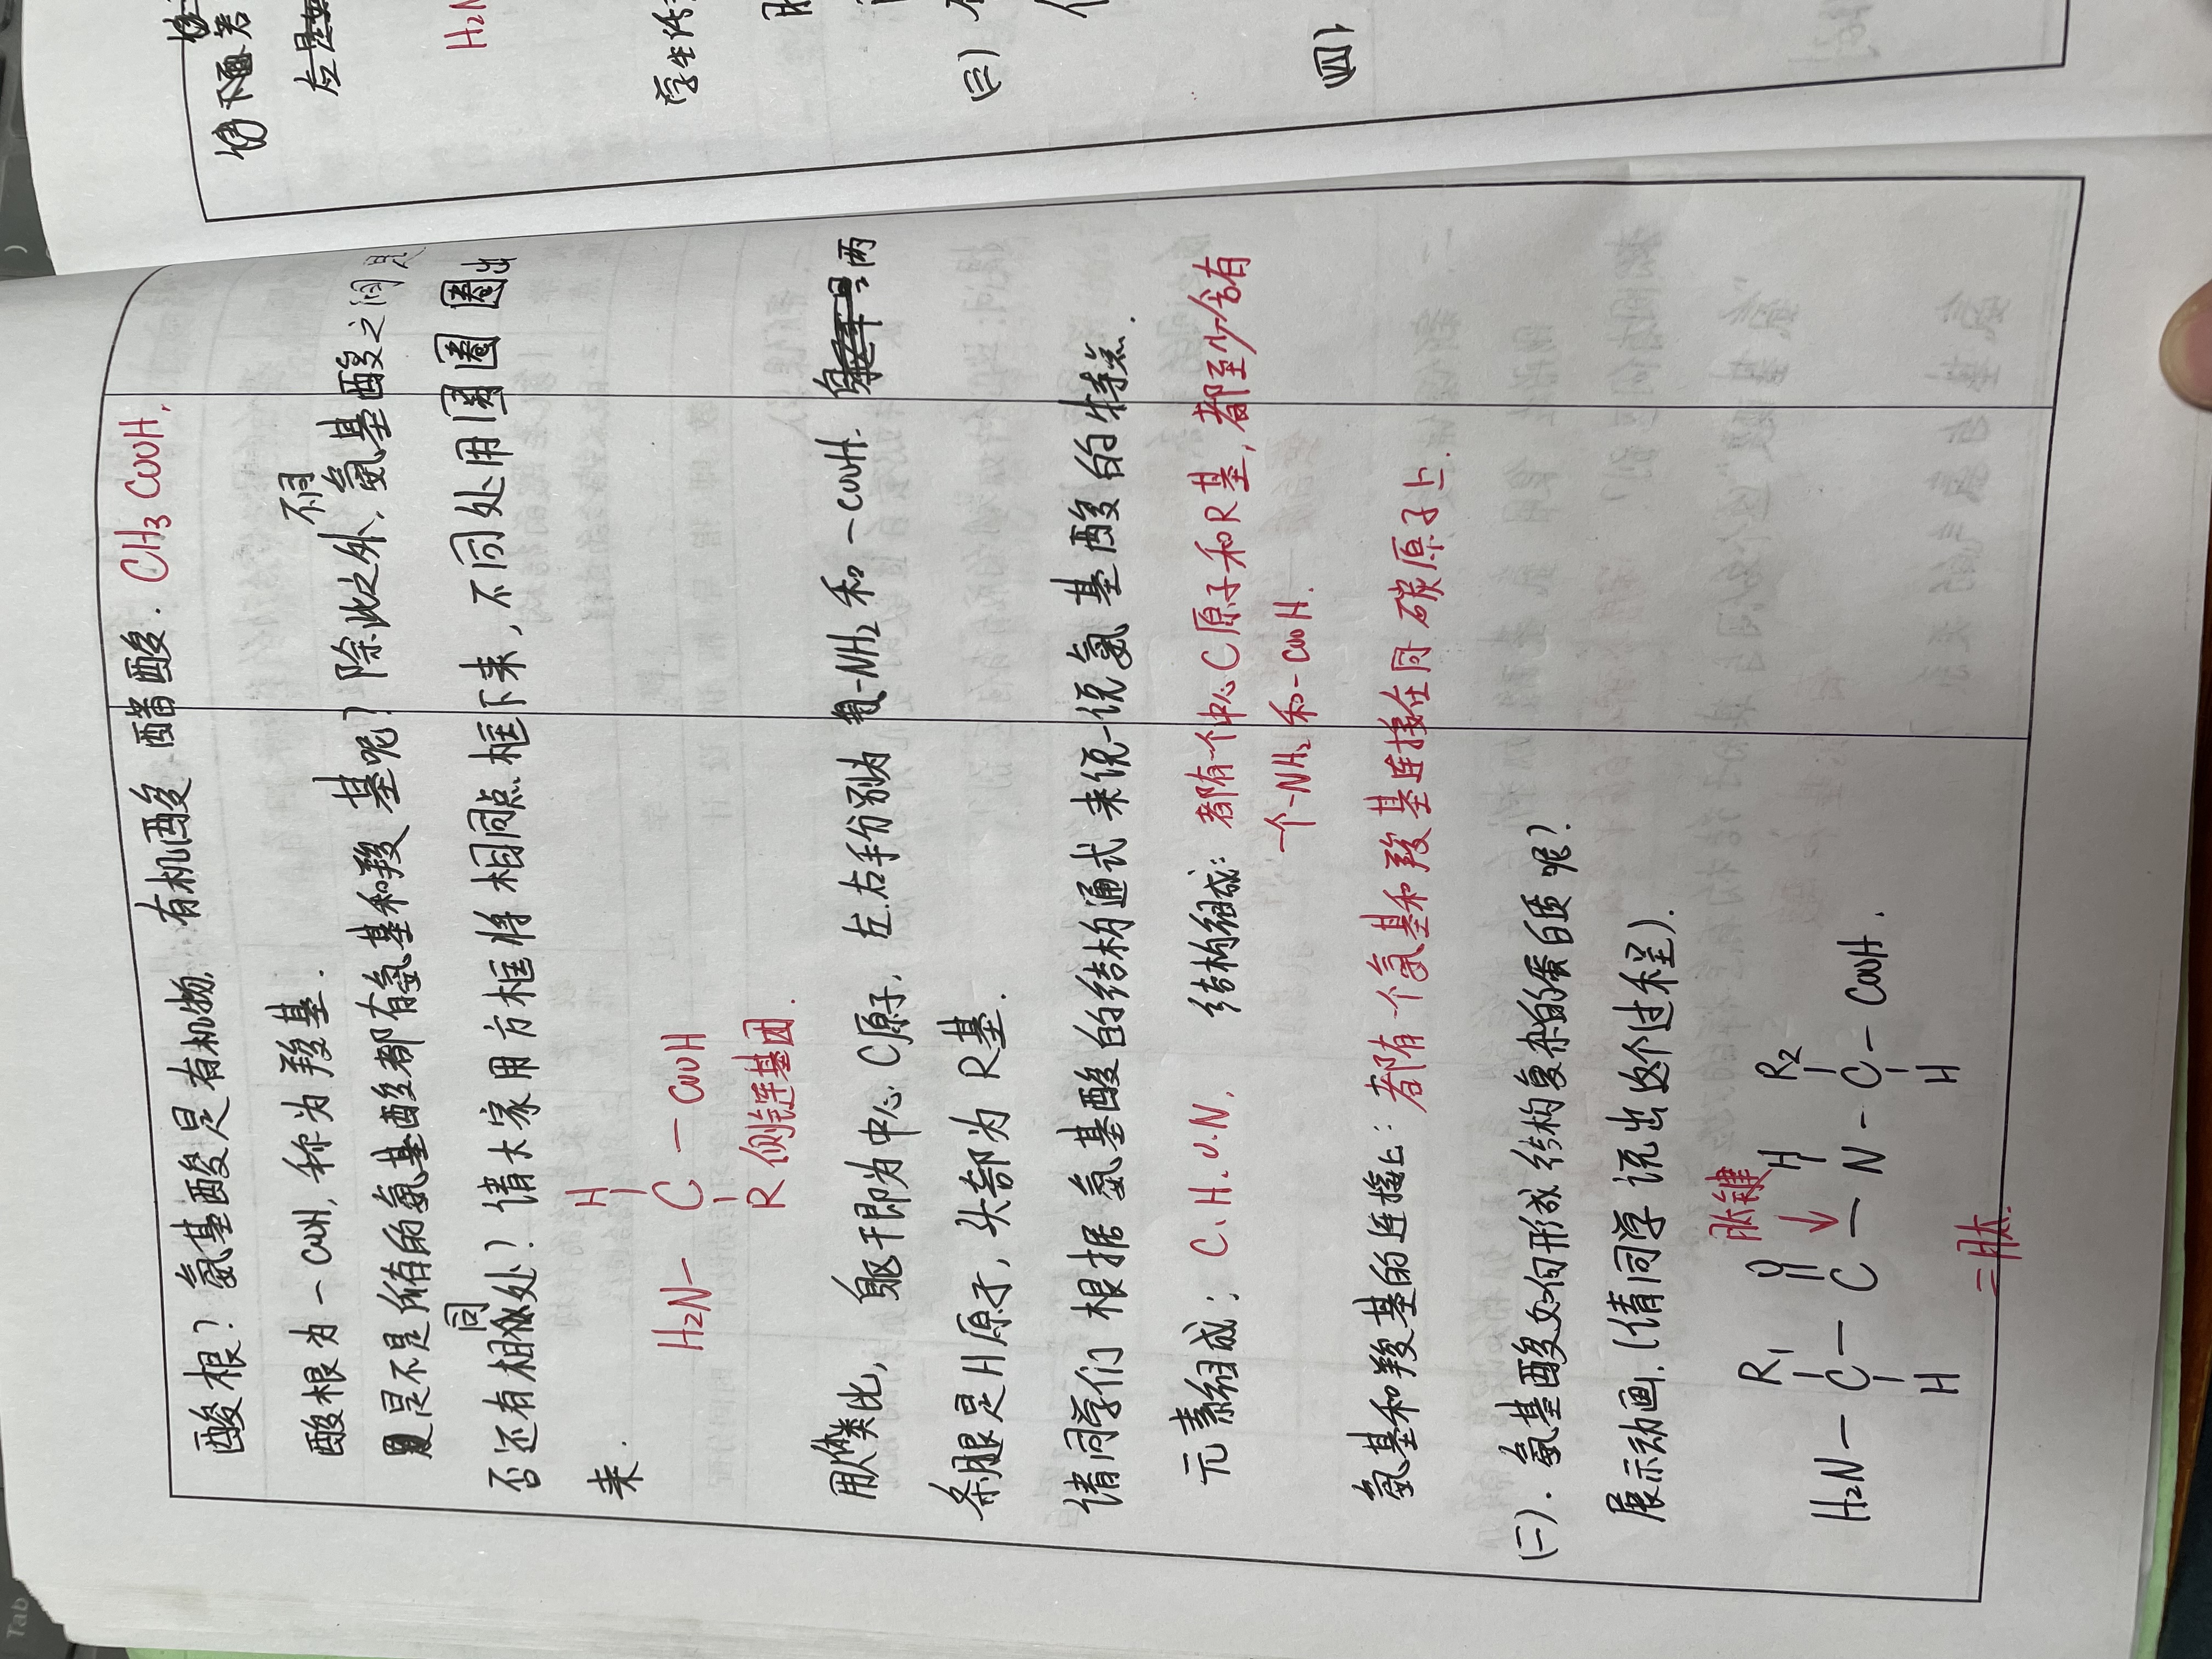 酸根? 氨基酸是有机物. 有机酸 醋酸. CH₃COOH.
酸根为 -COOH, 称为羧基.
不同
是不是所有的氨基酸都有氨基和羧基呢? 除此之外, 氨基酸之间是
同
否还有相处? 请大家用方框将相同点框下来, 不同处用圆圈圈出
来.
H
H₂N - C - COOH
R 侧链基团.
用人体类比, 躯干即为中心C原子, 左.右手分别为 -NH₂ 和 -COOH. 两
条腿是H原子, 头部为R基.
请同学们根据氨基酸的结构通式来说一说氨基酸的特点.
元素组成: C.H.O.N. 结构组成: 都有一个中心C原子和R基, 都至少含有
一个-NH₂和-COOH.
氨基和羧基的连接上: 都有一个氨基和羧基连接在同一碳原子上.
(二). 氨基酸如何形成结构复杂的蛋白质呢?
展示动画. (请同学说出这个过程).
肽键
R₁ O H R₂
H₂N - C - C - N - C - COOH.
H H
二肽.
请下面
应是
H₂N
学生活
(三)
(四)